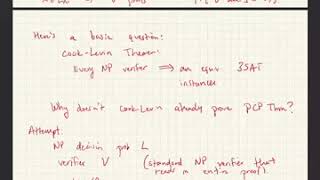 Here's a basic question:
Cook-Levin Theorem:
Every NP verifier ⟹ an equiv 3SAT
instances
Why doesn't Cook-Levin already prove PCP Thm?
Attempt:
NP decision prob L
verifier V (standard NP verifier that
reads in entire proof)